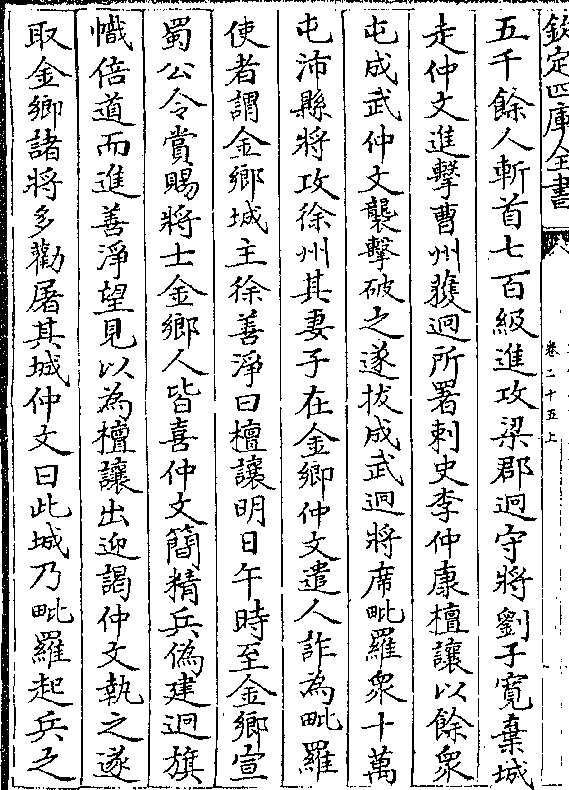 欽定四庫全書
卷二十五上
五千餘人斬首七百級進攻梁郡迥守將劉子寬棄城
走仲文進擊曹州獲迥所署刺史李仲康檀讓以餘衆
屯成武仲文襲擊破之遂拔成武迥將席毗羅衆十萬
屯沛縣將攻徐州其妻子在金鄉仲文遣人詐為毗羅
使者謂金鄉城主徐善淨曰檀讓明日午時至金鄉宣
蜀公令賞賜將士金鄉人皆喜仲文簡精兵偽建迥旗
幟倍道而進善淨望見以為檀讓出迎謁仲文執之遂
取金鄉諸將多勸屠其城仲文曰此城乃毗羅起兵之